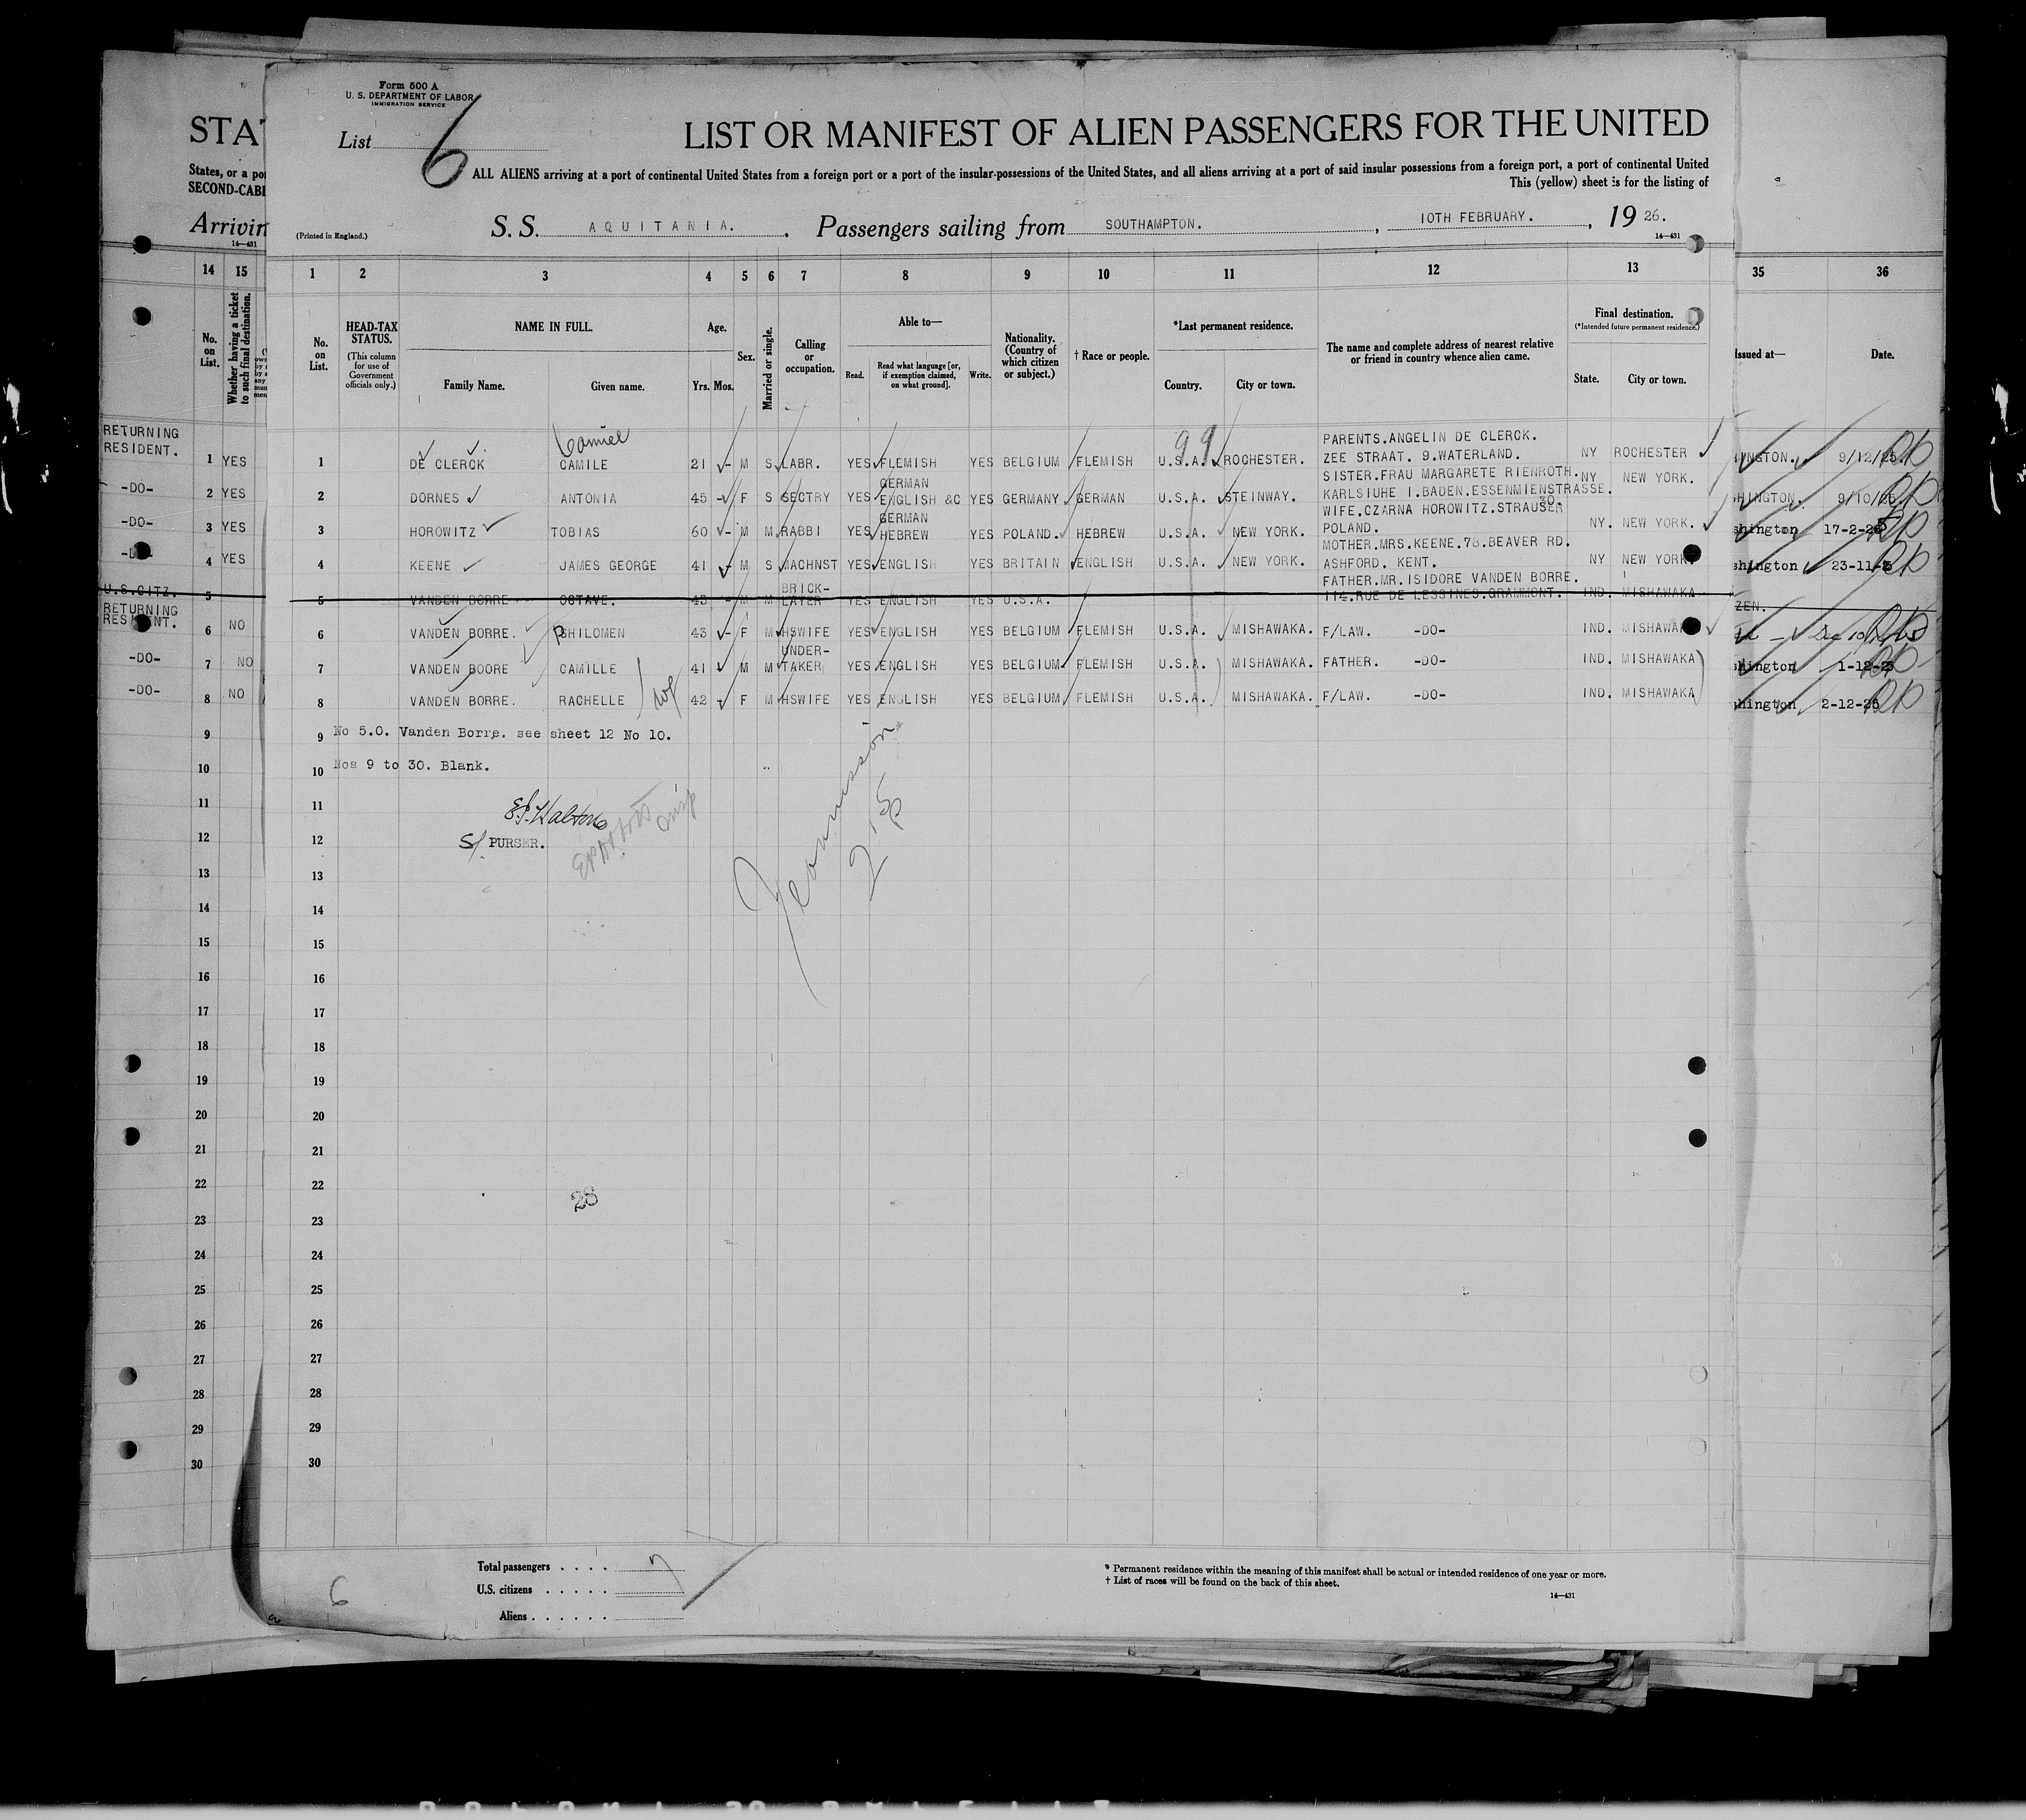 Form 500 A
U. S. DEPARTMENT OF LABOR
IMMIGRATION SERVICE
List 6
STA
LIST OR MANIFEST OF ALIEN PASSENGERS FOR THE UNITED
States, or a po
SECOND-CABI
ALL ALIENS arriving at a port of continental United States from a foreign port or a port of the insular possessions of the United States, and all aliens arriving at a port of said insular possessions from a foreign port, a port of continental United
This (yellow) sheet is for the listing of
Arrivin
14—431
(Printed in England.)
S. S. AQUITANIA. , Passengers sailing from SOUTHAMPTON. , 10TH FEBRUARY. , 19 26.
14—431
14 15 1 2 3 4 5 6 7 8 9 10 11 12 13 35 36
No. on List.
Whether having a ticket to such final destination.
No. on List.
HEAD-TAX STATUS.
(This column for use of Government officials only.)
NAME IN FULL.
Family Name. Given name.
Age.
Yrs. Mos.
Sex.
Married or single.
Calling or occupation.
Able to—
Read. Read what language [or, if exemption claimed, on what ground]. Write.
Nationality. (Country of which citizen or subject.)
† Race or people.
*Last permanent residence.
Country. City or town.
The name and complete address of nearest relative or friend in country whence alien came.
Final destination.
(*Intended future permanent residence.)
State. City or town.
Issued at— Date.
RETURNING RESIDENT. 1 YES
1 DE CLERCK CAMILE Camiel 21 - M S LABR. YES FLEMISH YES BELGIUM FLEMISH U.S.A. 99 ROCHESTER. PARENTS.ANGELIN DE CLERCK. ZEE STRAAT. 9.WATERLAND. NY ROCHESTER INGTON. 9/12/25.
-DO- 2 YES
2 DORNES ANTONIA 45 - F S SECTRY YES GERMAN ENGLISH &C YES GERMANY GERMAN U.S.A. STEINWAY. SISTER.FRAU MARGARETE RIENROTH. KARLSIUHE I.BADEN.ESSENMIENSTRASSE. 30. NY NEW YORK. HINGTON. 9/10/25.
-DO- 3 YES
3 HOROWITZ TOBIAS 60 - M M RABBI YES GERMAN HEBREW YES POLAND. HEBREW U.S.A. NEW YORK. WIFE.CZARNA HOROWITZ.STRAUSEN POLAND. NY. NEW YORK. shington 17-2-25
-DO- 4 YES
4 KEENE JAMES GEORGE 41 - M S MACHNST YES ENGLISH YES BRITAIN ENGLISH U.S.A. NEW YORK. MOTHER.MRS.KEENE.78.BEAVER RD. ASHFORD. KENT. NY NEW YORK shington 23-11-2
U.S.CITZ. 5
5 VANDEN BORRE OCTAVE. 43 - M M BRICK-LAYER YES ENGLISH YES U.S.A. FATHER.MR.ISIDORE VANDEN BORRE. 114.RUE DE LESSINES.GRAMMONT. IND. MISHAWAKA ZEN.
RETURNING RESIDENT. 6 NO
6 VANDEN BORRE. PHILOMEN 43 - F M HSWIFE YES ENGLISH YES BELGIUM FLEMISH U.S.A. MISHAWAKA. F/LAW. -DO- IND. MISHAWAKA Dec 10
-DO- 7 NO
7 VANDEN BOORE CAMILLE 41 M M UNDER-TAKER YES ENGLISH YES BELGIUM FLEMISH U.S.A. MISHAWAKA. FATHER. -DO- IND. MISHAWAKA shington 1-12-25
-DO- 8 NO
8 VANDEN BORRE. RACHELLE wf 42 - F M HSWIFE YES ENGLISH YES BELGIUM FLEMISH U.S.A. MISHAWAKA. F/LAW. -DO- IND. MISHAWAKA shington 2-12-25
9 9 No 5.O. Vanden Borre. see sheet 12 No 10.
10 10 Nos 9 to 30. Blank.
11 11
12 12 S/ PURSER.
13 13
14 14
15 15
16 16
17 17
18 18
19 19
20 20
21 21
22 22 28
23 23
24 24
25 25
26 26
27 27
28 28
29 29
30 30
Total passengers . . . . 7
U.S. citizens . . . . .
Aliens . . . . . .
6
* Permanent residence within the meaning of this manifest shall be actual or intended residence of one year or more.
† List of races will be found on the back of this sheet.
14—431